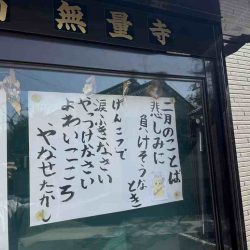 無量寺
二月のことば
悲しみに
負けそうな
とき
げんこつで
涙ふきなさい
やっつけなさい
よわいこころ
やなせたかし